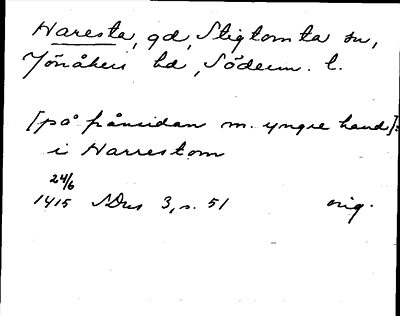 Haresta, gd, Stigtomta sn,
Jönåkers hd, Söderm. l.
[på frånsidan m. yngre hand]:
i Harrestom
24/6
1415 SDns 3, s. 51 orig.